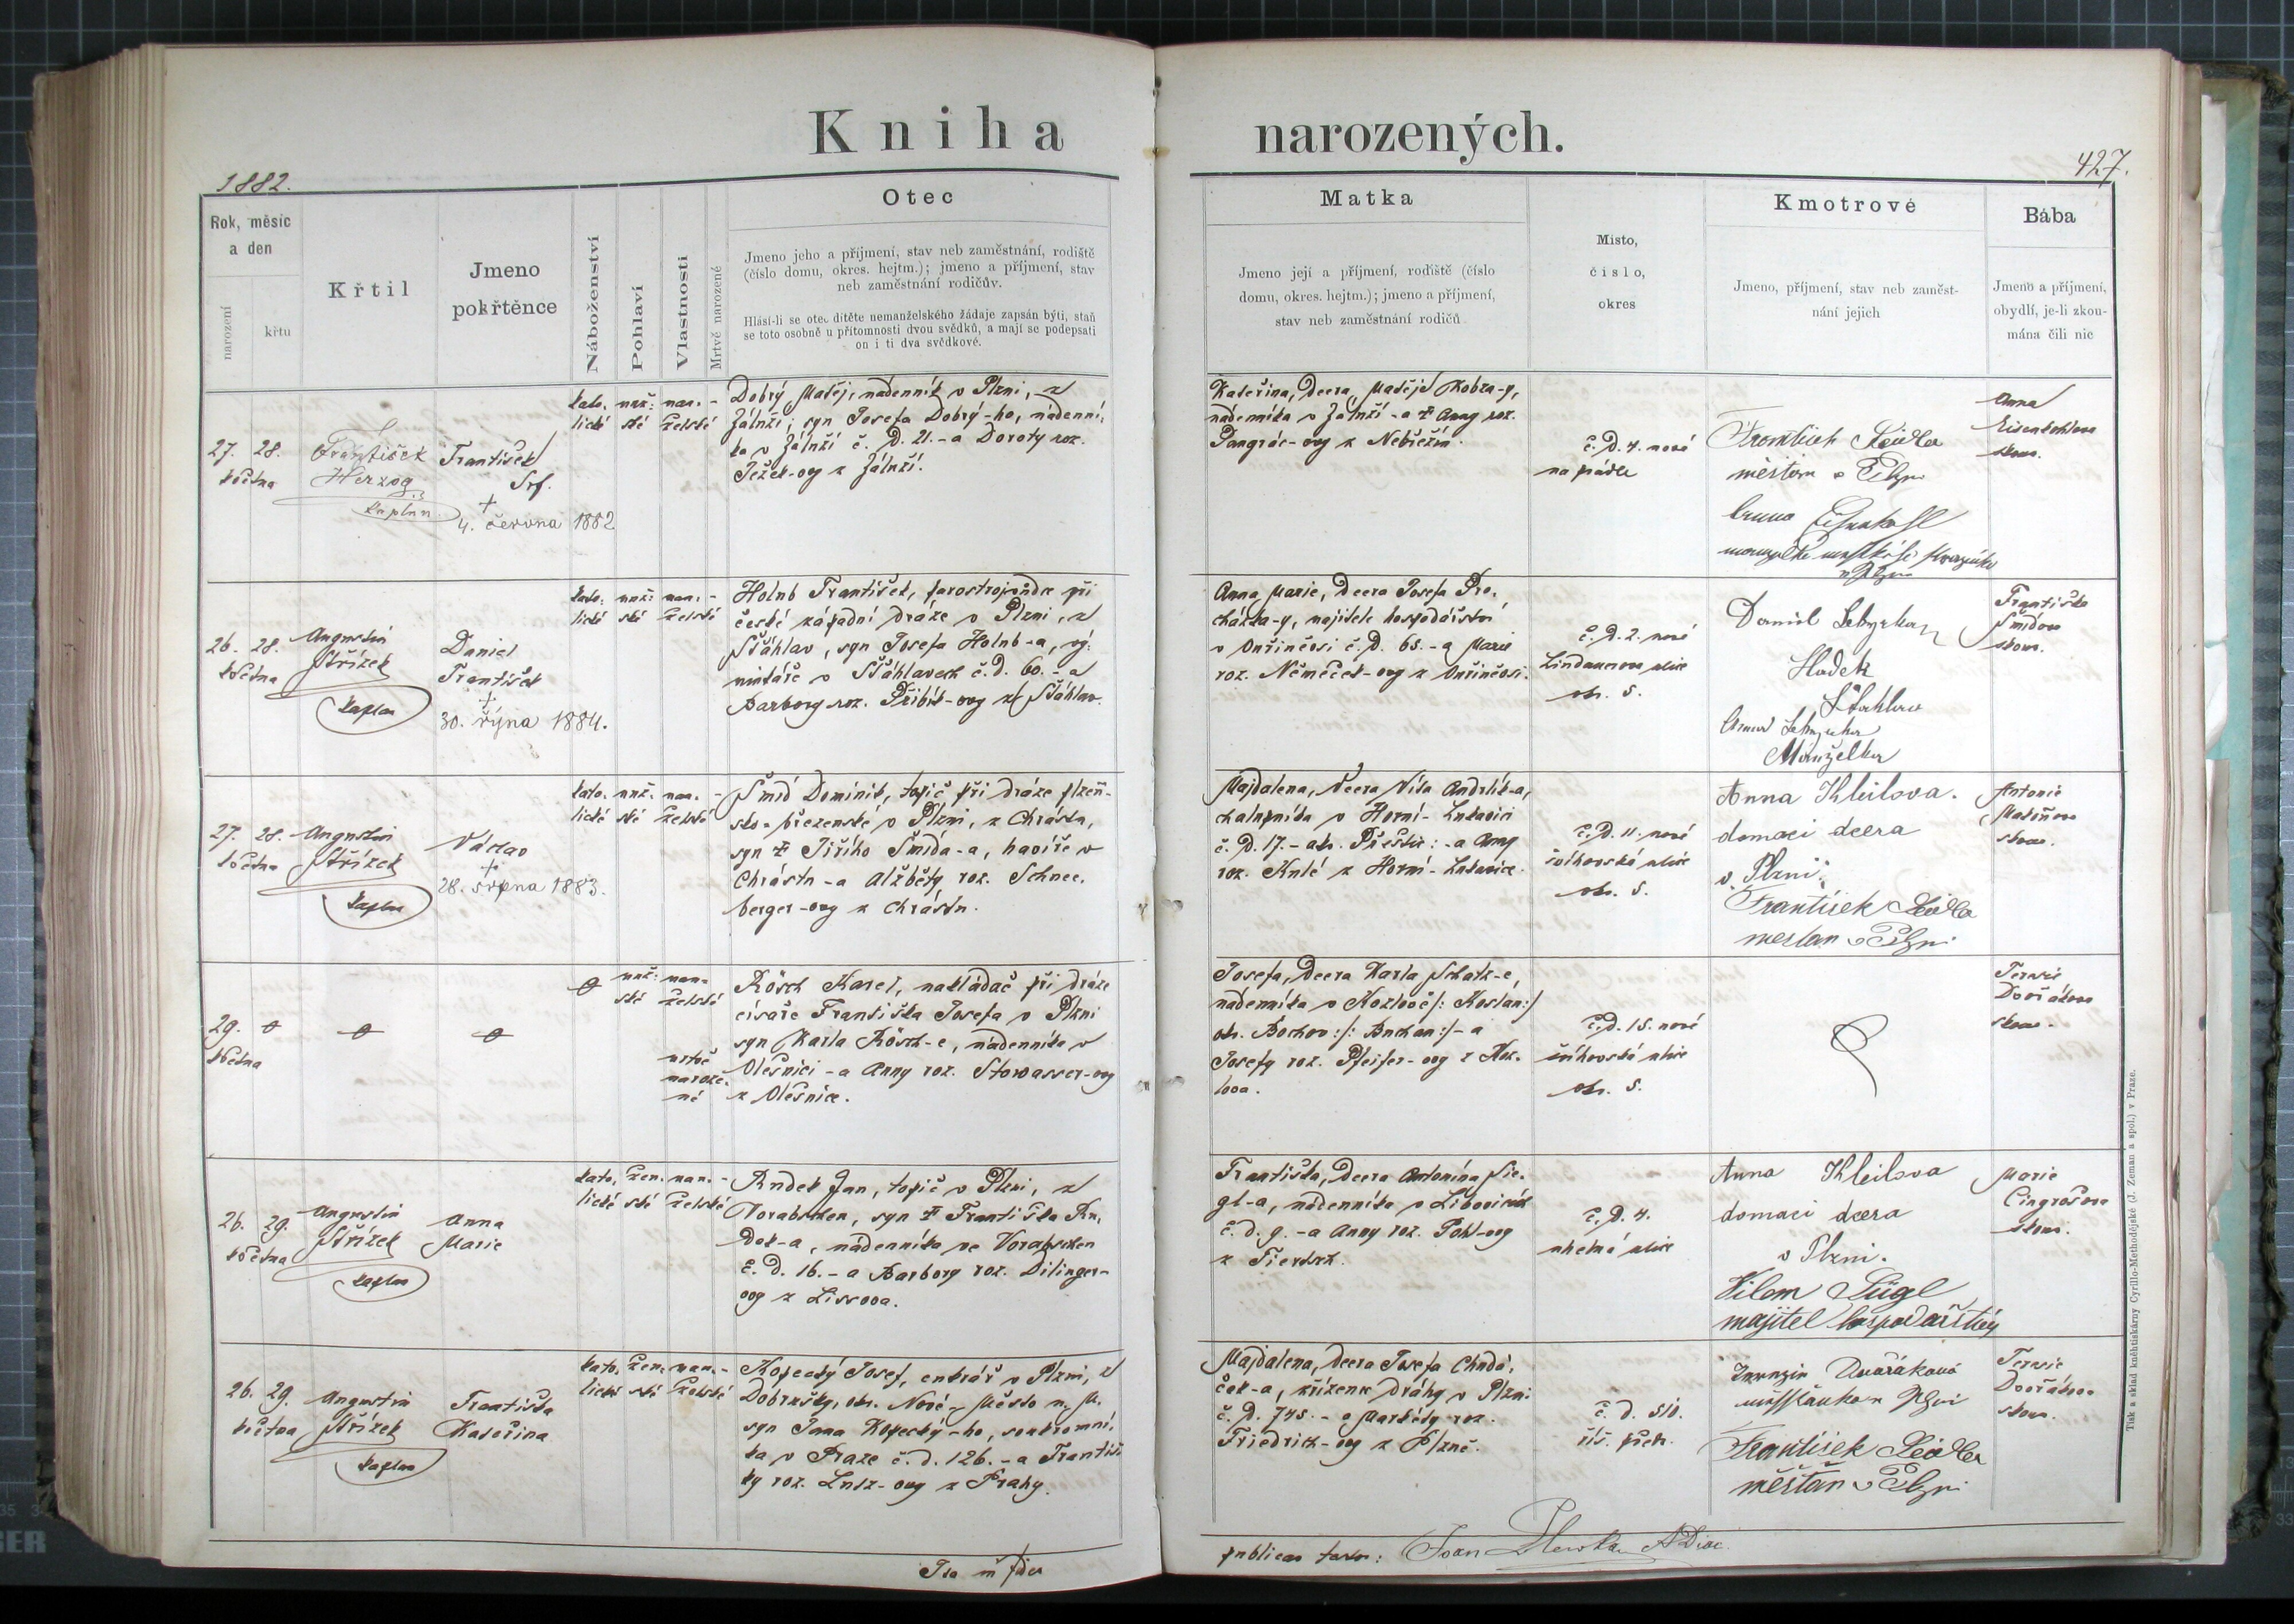 Kniha narozených.
1882.
427.
Rok, měsíc
a den
narození
křtu
Křtil
Jmeno
pokřtěnce
Náboženství
Pohlaví
Vlastnosti
Mrtvě narozené
Otec
Jmeno jeho a příjmení, stav neb zaměstnání, rodiště
(číslo domu, okres. hejtm.); jmeno a příjmení, stav
neb zaměstnání rodičův.
Hlásí-li se otec dítěte nemanželského žádaje zapsán býti, staň
se toto osobně u přítomnosti dvou svědků, a mají se podepsati
on i ti dva svědkové.
Matka
Jmeno její a příjmení, rodiště (číslo
domu, okres. hejtm.); jmeno a příjmení,
stav neb zaměstnání rodičů
Místo,
číslo,
okres
Kmotrové
Jmeno, příjmení, stav neb zaměst-
nání jejich
Bába
Jmeno a příjmení,
obydlí, je-li zkou-
mána čili nic
27. 28.
května
František
Herzog
kaplan
František
Srf.
+
4. června 1882
kato- muž- man- -
lické ské želské
Dobrý Matěj, nádenník v Plzni, z
Zálnží; syn Josefa Dobrý-ho, nádenní-
ka v Zálnží č. d. 21. - a Doroty roz.
Ježek-ovy z Zálnží.
Kateřina, dcera Matěje Kobza-y,
nádenníka v Zálnží - a + Anny roz.
Pangrác-ovy z Nebřezin.
č. d. 4. nové
na prádle
František Seidler
měšťan v Plzni
Anna
skous.
26. 28.
května
Augustin
Střízek
kaplan
Daniel
František
+
30. října 1884.
kato- muž- man- -
lické ské želské
Holub František, parostrojvůdce při
české západní dráze v Plzni, z
Šťáhlav, syn Josefa Holub-a, vý-
mínkáře v Šťáhlavech č. d. 60. - a
Barbory roz. Přibík-ovy z Šťáhlav.
Anna Marie, dcera Josefa Pro-
cházka-y, majitele hospodářství
v Vnčinčosi č. d. 65. - a Marie
roz. Němeček-ovy z
č. d. 2. nové
Lindauerova ulice
obv. S.
Daniel
Hádek
Šťáhlav
Anna
Manželka
Františka
Šmídova
skous.
27. 28.
května
Augustin
Střízek
kaplan
Václav
+
28. srpna 1883.
kato- muž- man- -
lické ské želské
Šmíd Dominik, topič při dráze plzeň-
sko-březenské v Plzni, z Chrástu,
syn + Jiřího Šmída-a, havíře v
Chrástu - a Alžběty roz. Schnee-
berger-ovy z Chrástu.
Majdalena, dcera Víta Andrlík-a,
chalupníka v Horní-Lukavici
č. d. 17. - okr. Přeštic: - a Anny
roz. Kulé z Horní-Lukavice.
č. d. 11. nové
švihovská ulice
obv. S.
Anna Kleilova.
domaci dcera
v. Plzni.
František Seidler
mesťan v Plzni
Antonie
skous.
29.
května
muž- man-
ské želské
mrtvě
naroze-
né
Rösch Karel, nakládač při dráze
císaře Františka Josefa v Plzni
syn Karla Rösch-e, nádenníka v
Olešnici - a Anny roz. Stowasser-ovy
z Olešnice.
Josefa, dcera Karla Schatz-e,
nádenníka v Kozlově/: Koslau:/
okr. Bochov:/: Buchau:/ - a
Josefy roz. Pfeifer-ovy z Koz-
lova.
č. d. 15. nové
švihovská ulice
obv. S.
Terezie
Dvořákova
skous.
26. 29.
května
Augustin
Střízek
kaplan
Anna
Marie
kato- žen- man- -
lické ské želské
Rudek Jan, topič v Plzni, z
Vorabschen, syn + Františka Ru-
dek-a, nádenníka ve Vorabschen
č. d. 16. - a Barbory roz. Dilinger-
ovy z Lissova.
Františka, dcera Antonína Sie-
gl-a, nádenníka v
č. d. 9. - a Anny roz. Pohl-ovy
z
č. d. 4.
uhelná ulice
Anna Kleilova
domaci dcera
v Plzni.
Vilem Sügl
majitel hospodářstvý
Marie
Cingrošova
skous.
26. 29.
května
Augustin
Střízek
kaplan
Františka
Kateřina
kato- žen- man- -
lické ské želské
Kopecký Josef, cukrář v Plzni, z
Dobrušky, okr. Nové-Město n. M.
syn Jana Kopecký-ho, soukromní-
ka v Praze č. d. 126. - a Františ-
ky roz. Lutz-ovy z Prahy.
Majdalena, dcera Josefa Chudá-
ček-a, zřízence dráhy v Plzni
č. d. 745. - a Markéty roz.
Friedrich-ovy z Plzně.
č. d. 510.
říš. předm.
Dvořáková
František Seidler
měšťan v Plzni
Terezie
Dvořákova
skous.
Tisk a sklad kněhtiskárny Cyrillo-Methodějské (J. Zeman a spol.) v Praze.